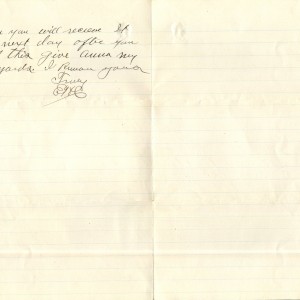 you will receive it
next day after you
this give Anna my
I remain yours
Truly